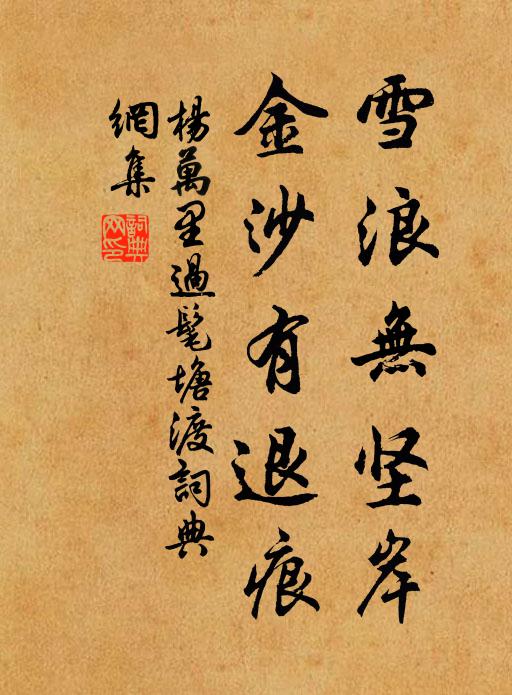 雪浪無坚岸
金沙有退痕
楊萬里過髦塘渡詞典
網集
詞典
网印